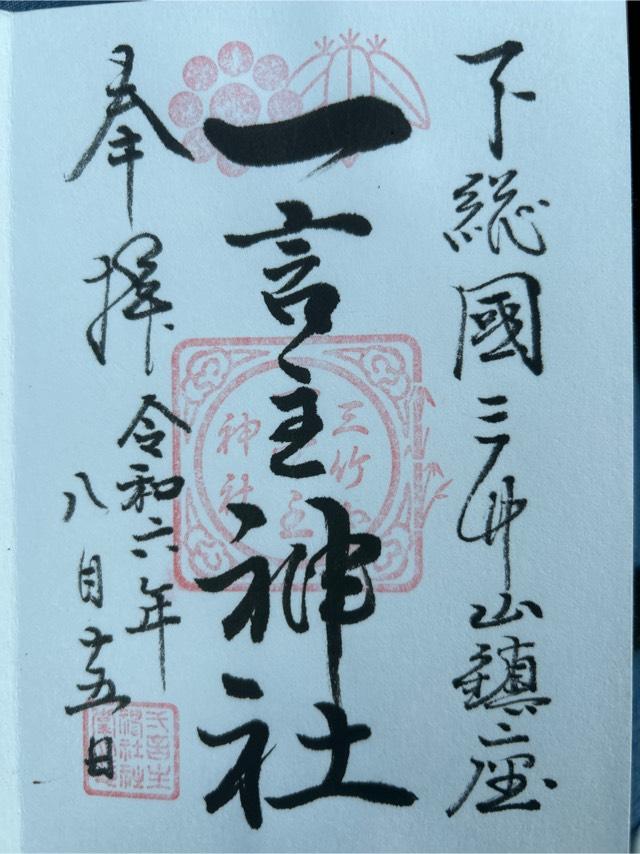 下総國三竹山鎮座
一言主神社
奉拝
令和六年
八月十五日